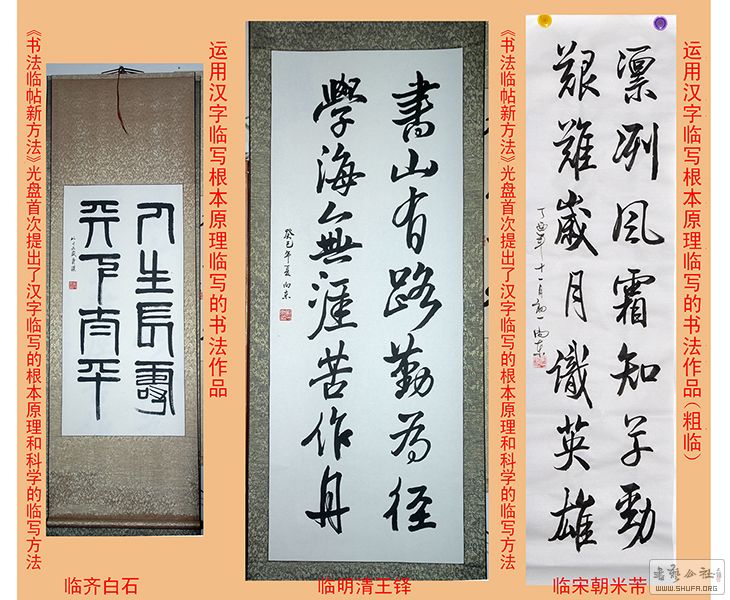 《书法临帖新方法》光盘首次提出了汉字临写的根本原理和科学的临写方法
运用汉字临写根本原理临写的书法作品
人生長壽
天下太平
临齐白石
書山有路勤为径
學海無涯苦作舟
癸巳年夏向东
临明清王铎
《书法临帖新方法》光盘首次提出了汉字临写的根本原理和科学的临写方法
运用汉字临写根本原理临写的书法作品（粗临）
凛冽风霜知草勁
艱難歲月識英雄
丁酉年十一月初一向东
临宋朝米芾
書藝公社
WWW.SHUFA.ORG